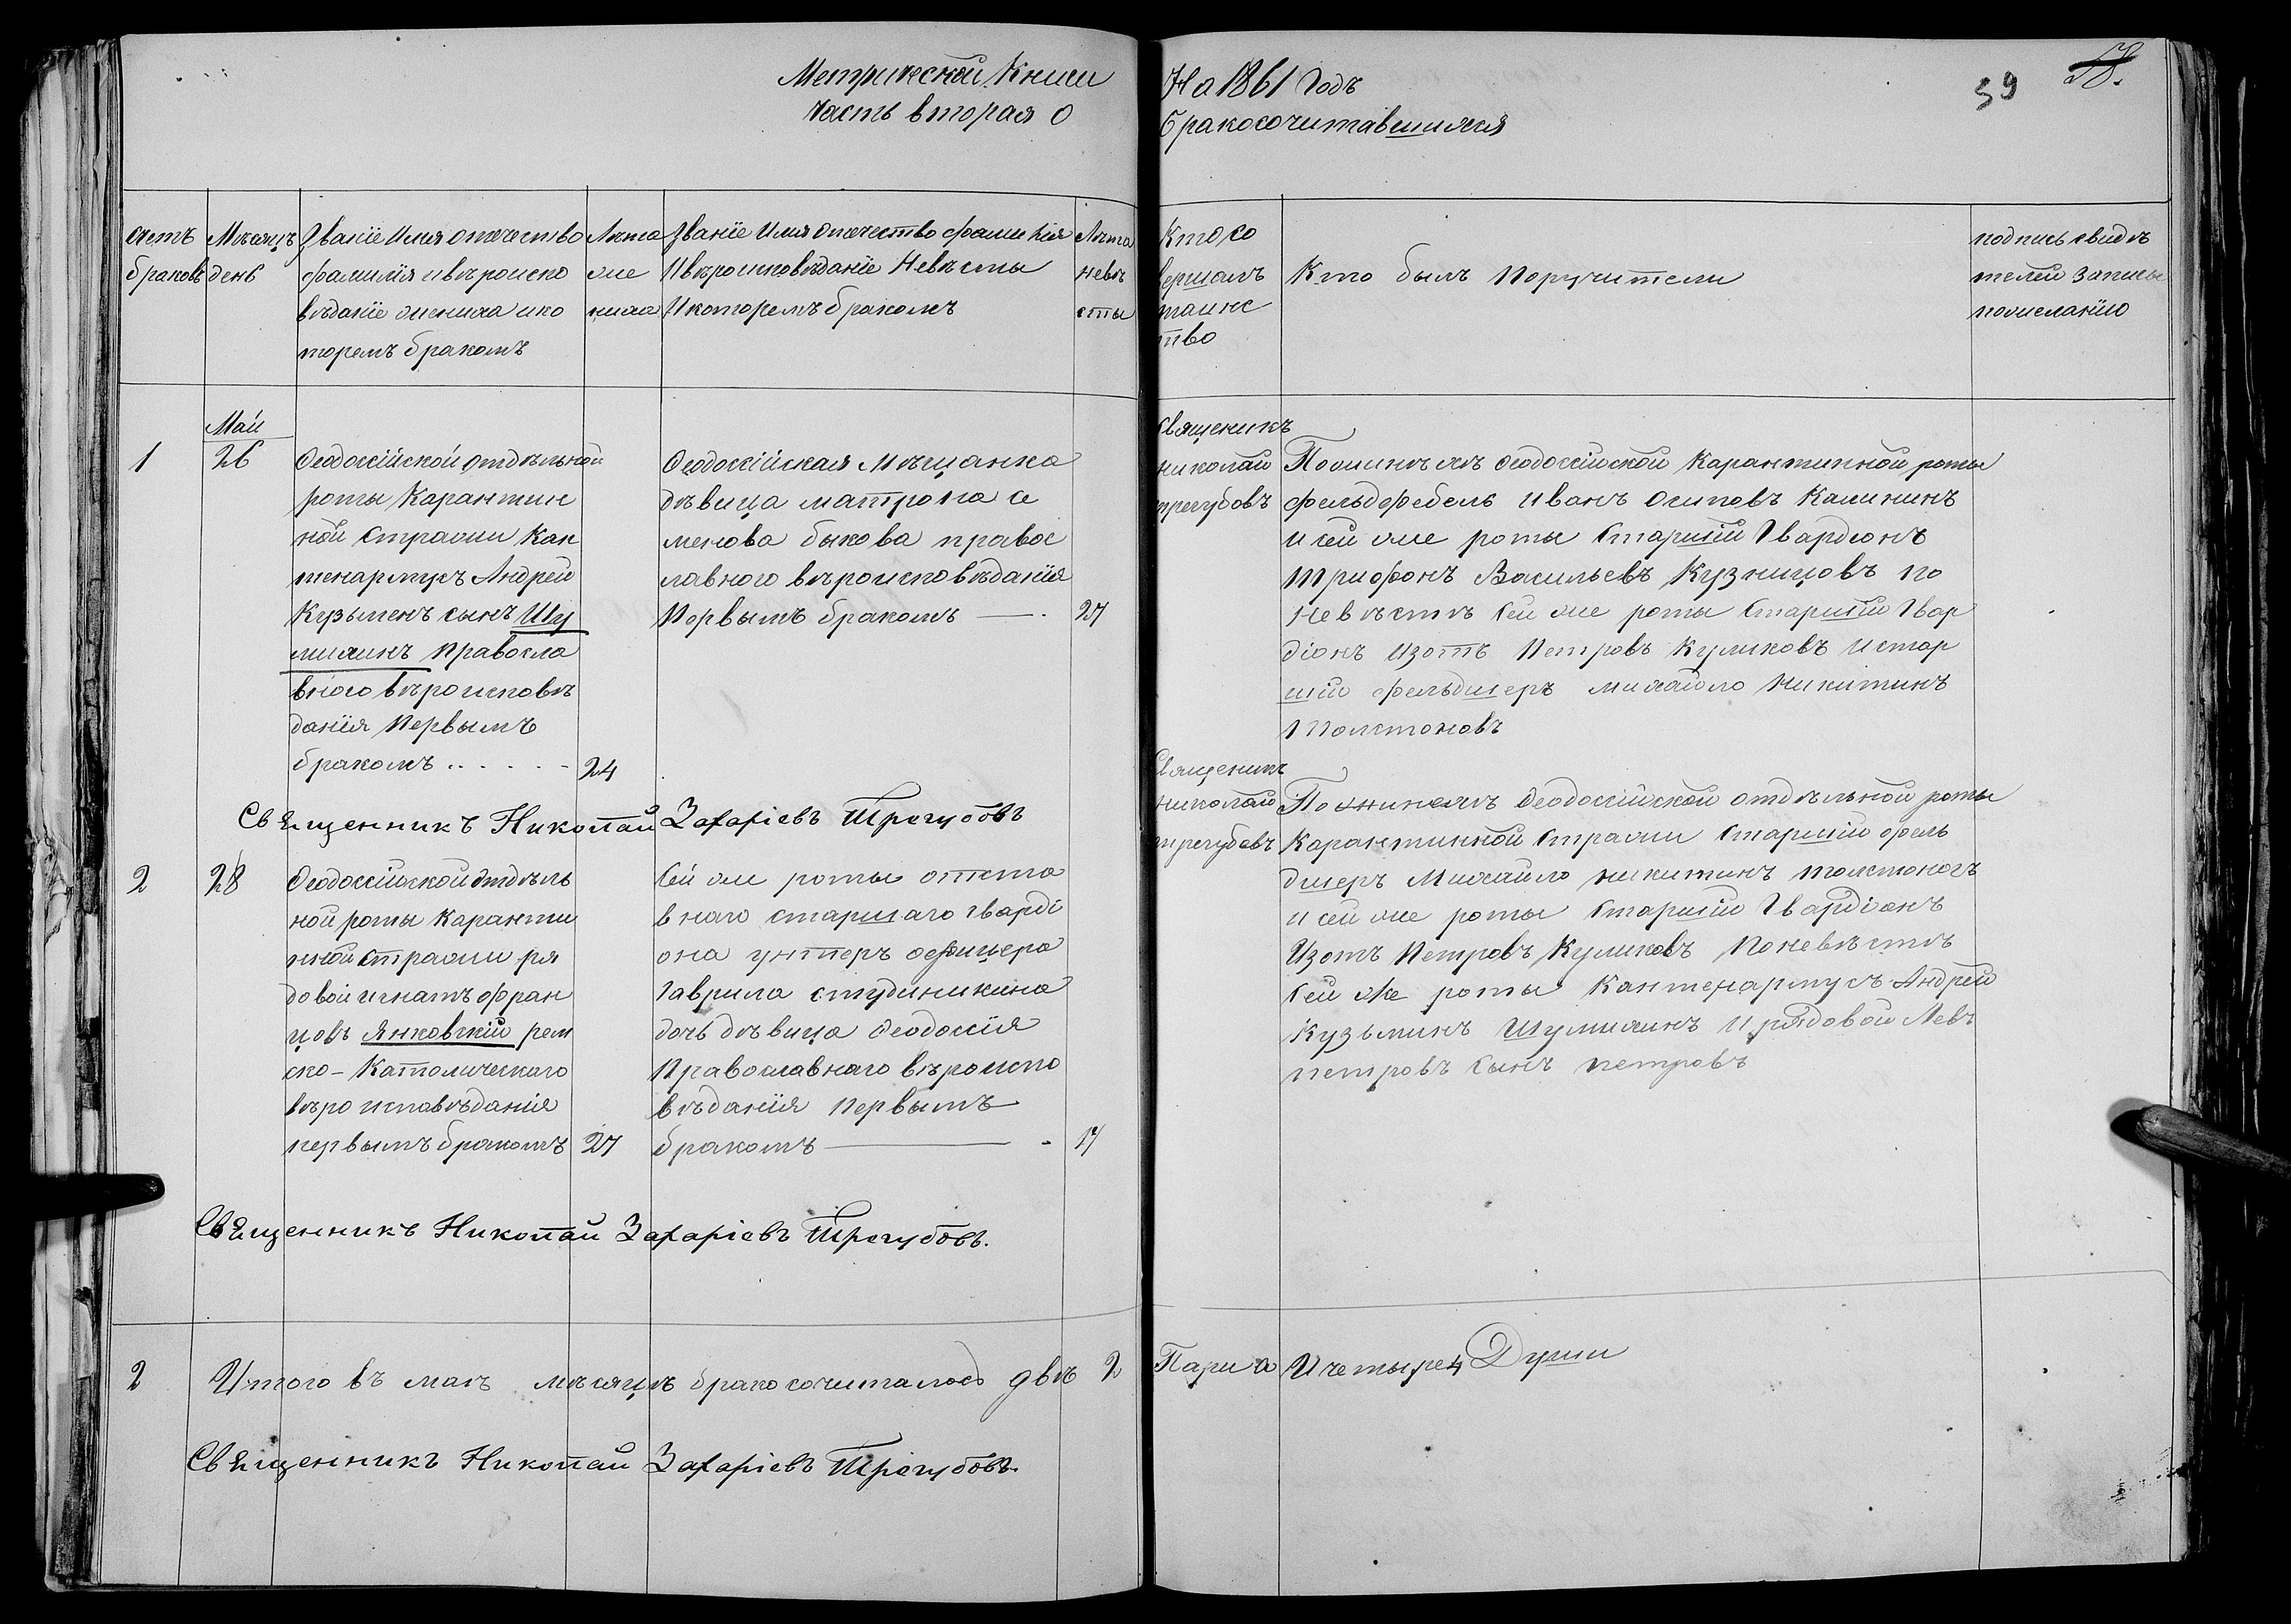 Метрической Книги
часть вторая о
На 1861 Годъ
бракосочитавшихся
59 58.
счетъ браковъ
Мѣсяцъ день
Званїе Имя отечество
фамилїя ивѣроиспо
вѣданїе жениха ико
торемъ бракомъ
Лѣта
же
ниха
Званїе Имя отечество фамилїя
Ивѣроисповѣданїе Невѣсты
Икоторемъ бракомъ
Лѣта
невѣ
сты
Кто со
вершалъ
таинс
тво
Кто былъ Поручители
подпись свидѣ
телей записы
пожеланїю
Маи
1
26
Феодосїйской отдѣльной
роты Карантин
ной стражи Кап
тенармусъ Андрей
Кузьменъ сынъ Шу
михинъ Правосла
вного вѣроисповѣ
данїя Первымъ
бракомъ . . . . . -
24
Феодосїйская Мѣщанка
дѣвица матрона се
менова быкова правос
лавного вѣроисповѣданїя
Первымъ бракомъ — .
27
священикъ
николай
трегубовъ
Пожинехѣ феодосїйской Карантинной роты
фельдфебель Иванъ Осиповъ Калининъ
и сей же роты Старшїй Гвардїонъ
Трифонъ Васильевъ Кузницовъ по
Невѣстѣ Сей же роты Старшїй Гвар
дїонъ Изотъ Петровъ Куликовъ и стар
шїй фельдшеръ михайло Никитинъ
Толстоновъ
Священникъ Николай Захаріевъ Трегубовъ
2
28
Феодосїйской отдѣль
ной роты Каранти
нной стражи ря
довой игнатъ фран
цовъ Янковскїй рем
ско-Католическаго
вѣро исповѣданїя
первымъ бракомъ
27
Сей же роты отста
вного старшаго гвардї
она унтеръ офицера
Гаврила студиникина
дочь дѣвица Феодосїя
Православнаго вѣроиспо
вѣданїя Первымъ
бракомъ —
17
Священикъ
николай
трегубовъ
Пожинехѣ Феодосїйской отдѣльной роты
Карантинной Стражи Старшїй фель
дшеръ Михайло никитинъ толстоногъ
и сей же роты Старшїй Гвардїонъ
Изотъ Петровъ Куликовъ Поневѣстѣ
Сей же роты Каптенармусъ Андрей
Кузьминъ Шумихинъ И рядовой Левъ
петровъ Сынъ петровъ
Священникъ Николай Захаріевъ Трегубовъ.
2
Итого въ маѣ мѣсяцѣ бракосочиталось двѣ 2 Пари а И четыре 4 Души
Священникъ Николай Захаріевъ Трегубовъ.